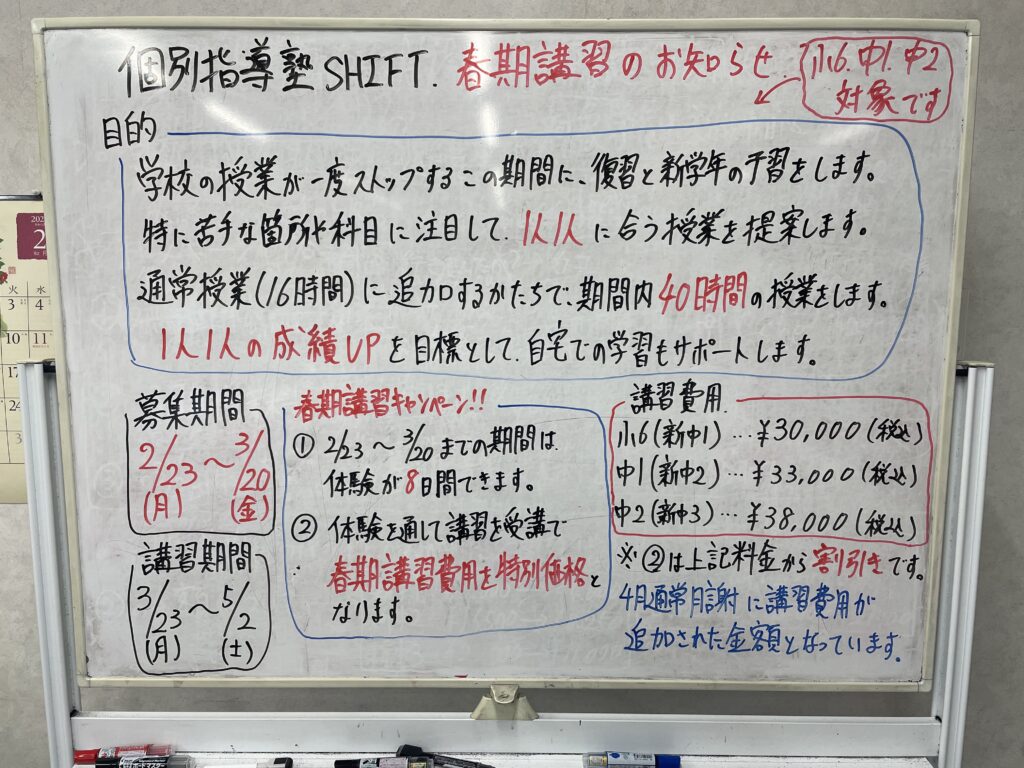 個別指導塾SHIFT. 春期講習のお知らせ
小6.中1.中2
対象です
目的
学校の授業が一度ストップするこの期間に、復習と新学年の予習をします。
特に苦手な箇所や科目に注目して、1人1人に合う授業を提案します。
通常授業(16時間)に追加するかたちで、期間内40時間の授業をします。
1人1人の成績UPを目標として、自宅での学習もサポートします。
募集期間
2/23〜3/20
(月) (金)
講習期間
3/23〜5/2
(月) (土)
春期講習キャンペーン!!
① 2/23〜3/20までの期間は、
体験が8日間できます。
② 体験を通して講習を受講で
春期講習費用を特別価格と
なります。
講習費用
小6(新中1)…¥30,000(税込)
中1(新中2)…¥33,000(税込)
中2(新中3)…¥38,000(税込)
※②は上記料金から割引きです。
4月通常月謝に講習費用が
追加された金額となっています。
2
火 水
3 4
10 11
17
24